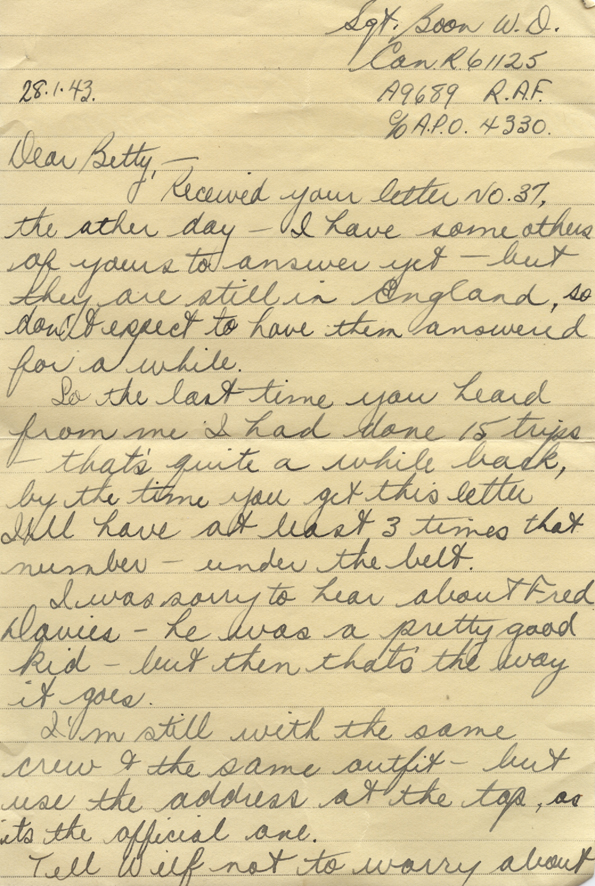 Sgt. Boon W. D.
Can. R. 61125
28.1.43.
A9689 R.A.F.
c/o A.P.O. 4330.
Dear Betty, —
Received your letter No. 37,
the other day — I have some others
of yours to answer yet — but
they are still in England, so
don't expect to have them answered
for a while.
So the last time you heard
from me I had done 15 trips
— that's quite a while back,
by the time you get this letter
I'll have at least 3 times that
number — under the belt.
I was sorry to hear about Fred
Davies — he was a pretty good
kid — but then that's the way
it goes.
I'm still with the same
crew & the same outfit — but
use the address at the top, as
its the official one.
Tell Wilf not to worry about